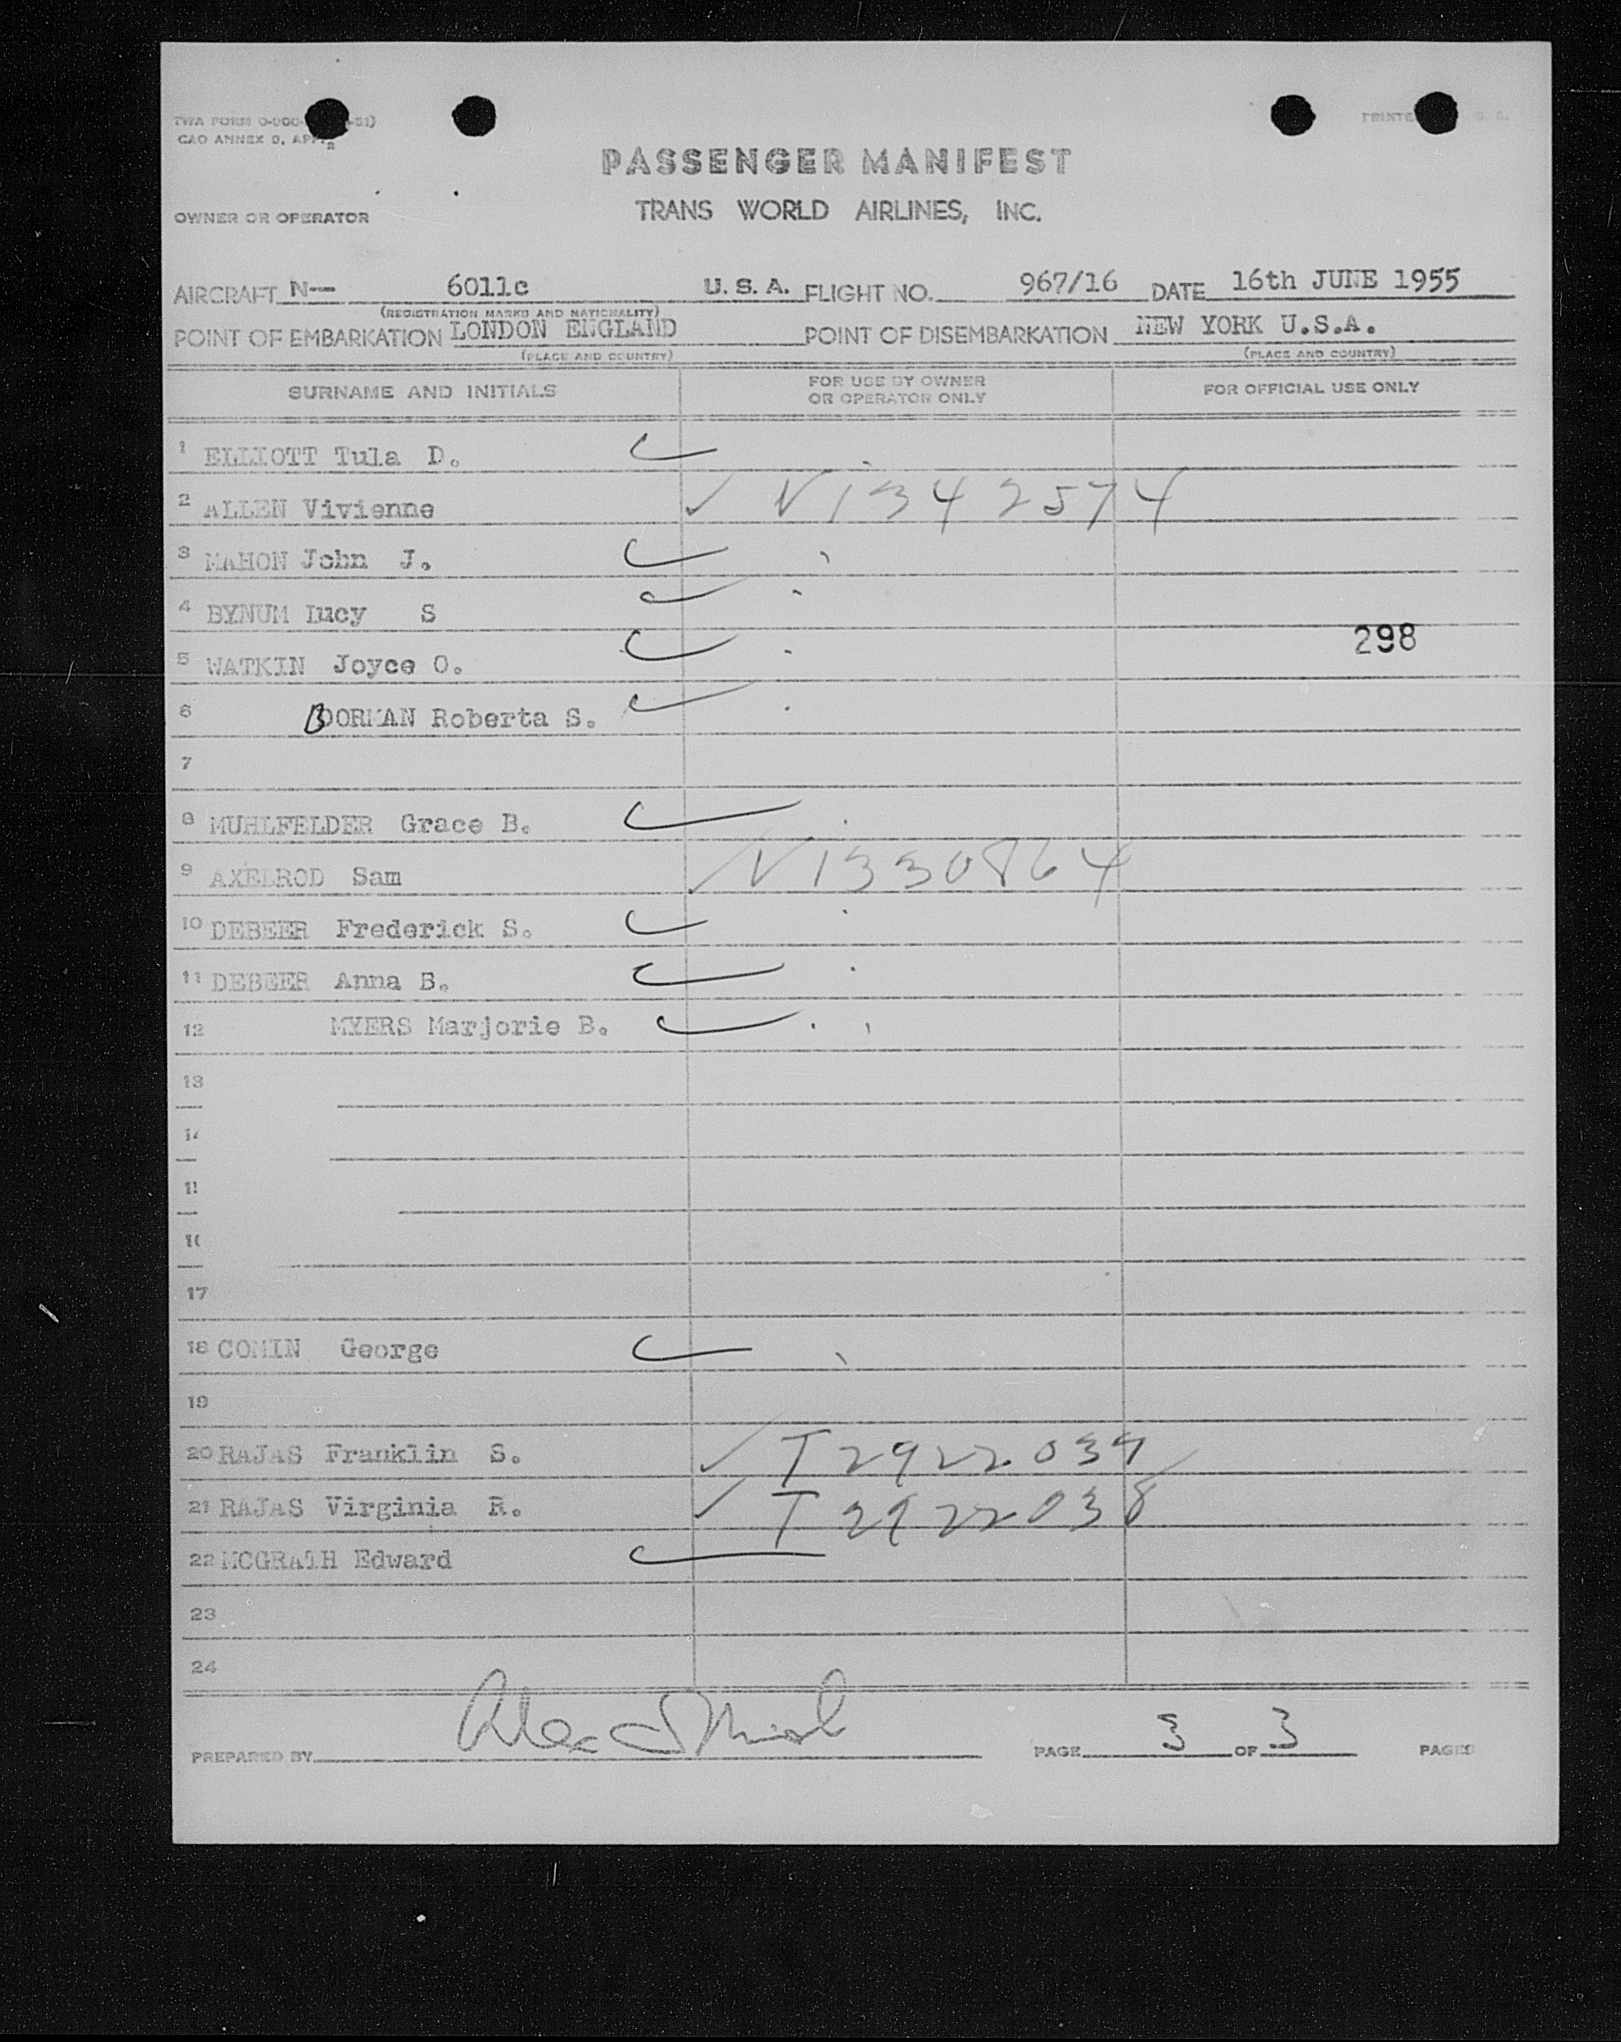 TWA FORM O-900-
CAO ANNEX 9, APP.
PRINTE
PASSENGER MANIFEST
OWNER OR OPERATOR
TRANS WORLD AIRLINES, INC.
AIRCRAFT N-- 6011c U. S. A. FLIGHT NO. 967/16 DATE 16th JUNE 1955
(REGISTRATION MARKS AND NATIONALITY)
POINT OF EMBARKATION LONDON ENGLAND POINT OF DISEMBARKATION NEW YORK U.S.A.
(PLACE AND COUNTRY) (PLACE AND COUNTRY)
SURNAME AND INITIALS FOR USE BY OWNER OR OPERATOR ONLY FOR OFFICIAL USE ONLY
1 ELLIOTT Tula D.
2 ALLEN Vivienne ✓ V1342574
3 MAHON John J.
4 BYNUM Lucy S
298
5 WATKIN Joyce O.
6 BORMAN Roberta S.
7
8 MUHLFELDER Grace B.
9 AXELROD Sam ✓ V1330864
10 DEBEER Frederick S.
11 DEBEER Anna B.
12 MYERS Marjorie B.
13
14
17
18 COMIN George
19
20 RAJAS Franklin S. ✓ T2922039
21 RAJAS Virginia R. ✓ T2922038
22 MCGRATH Edward
23
24
PREPARED BY PAGE 3 OF 3 PAGES